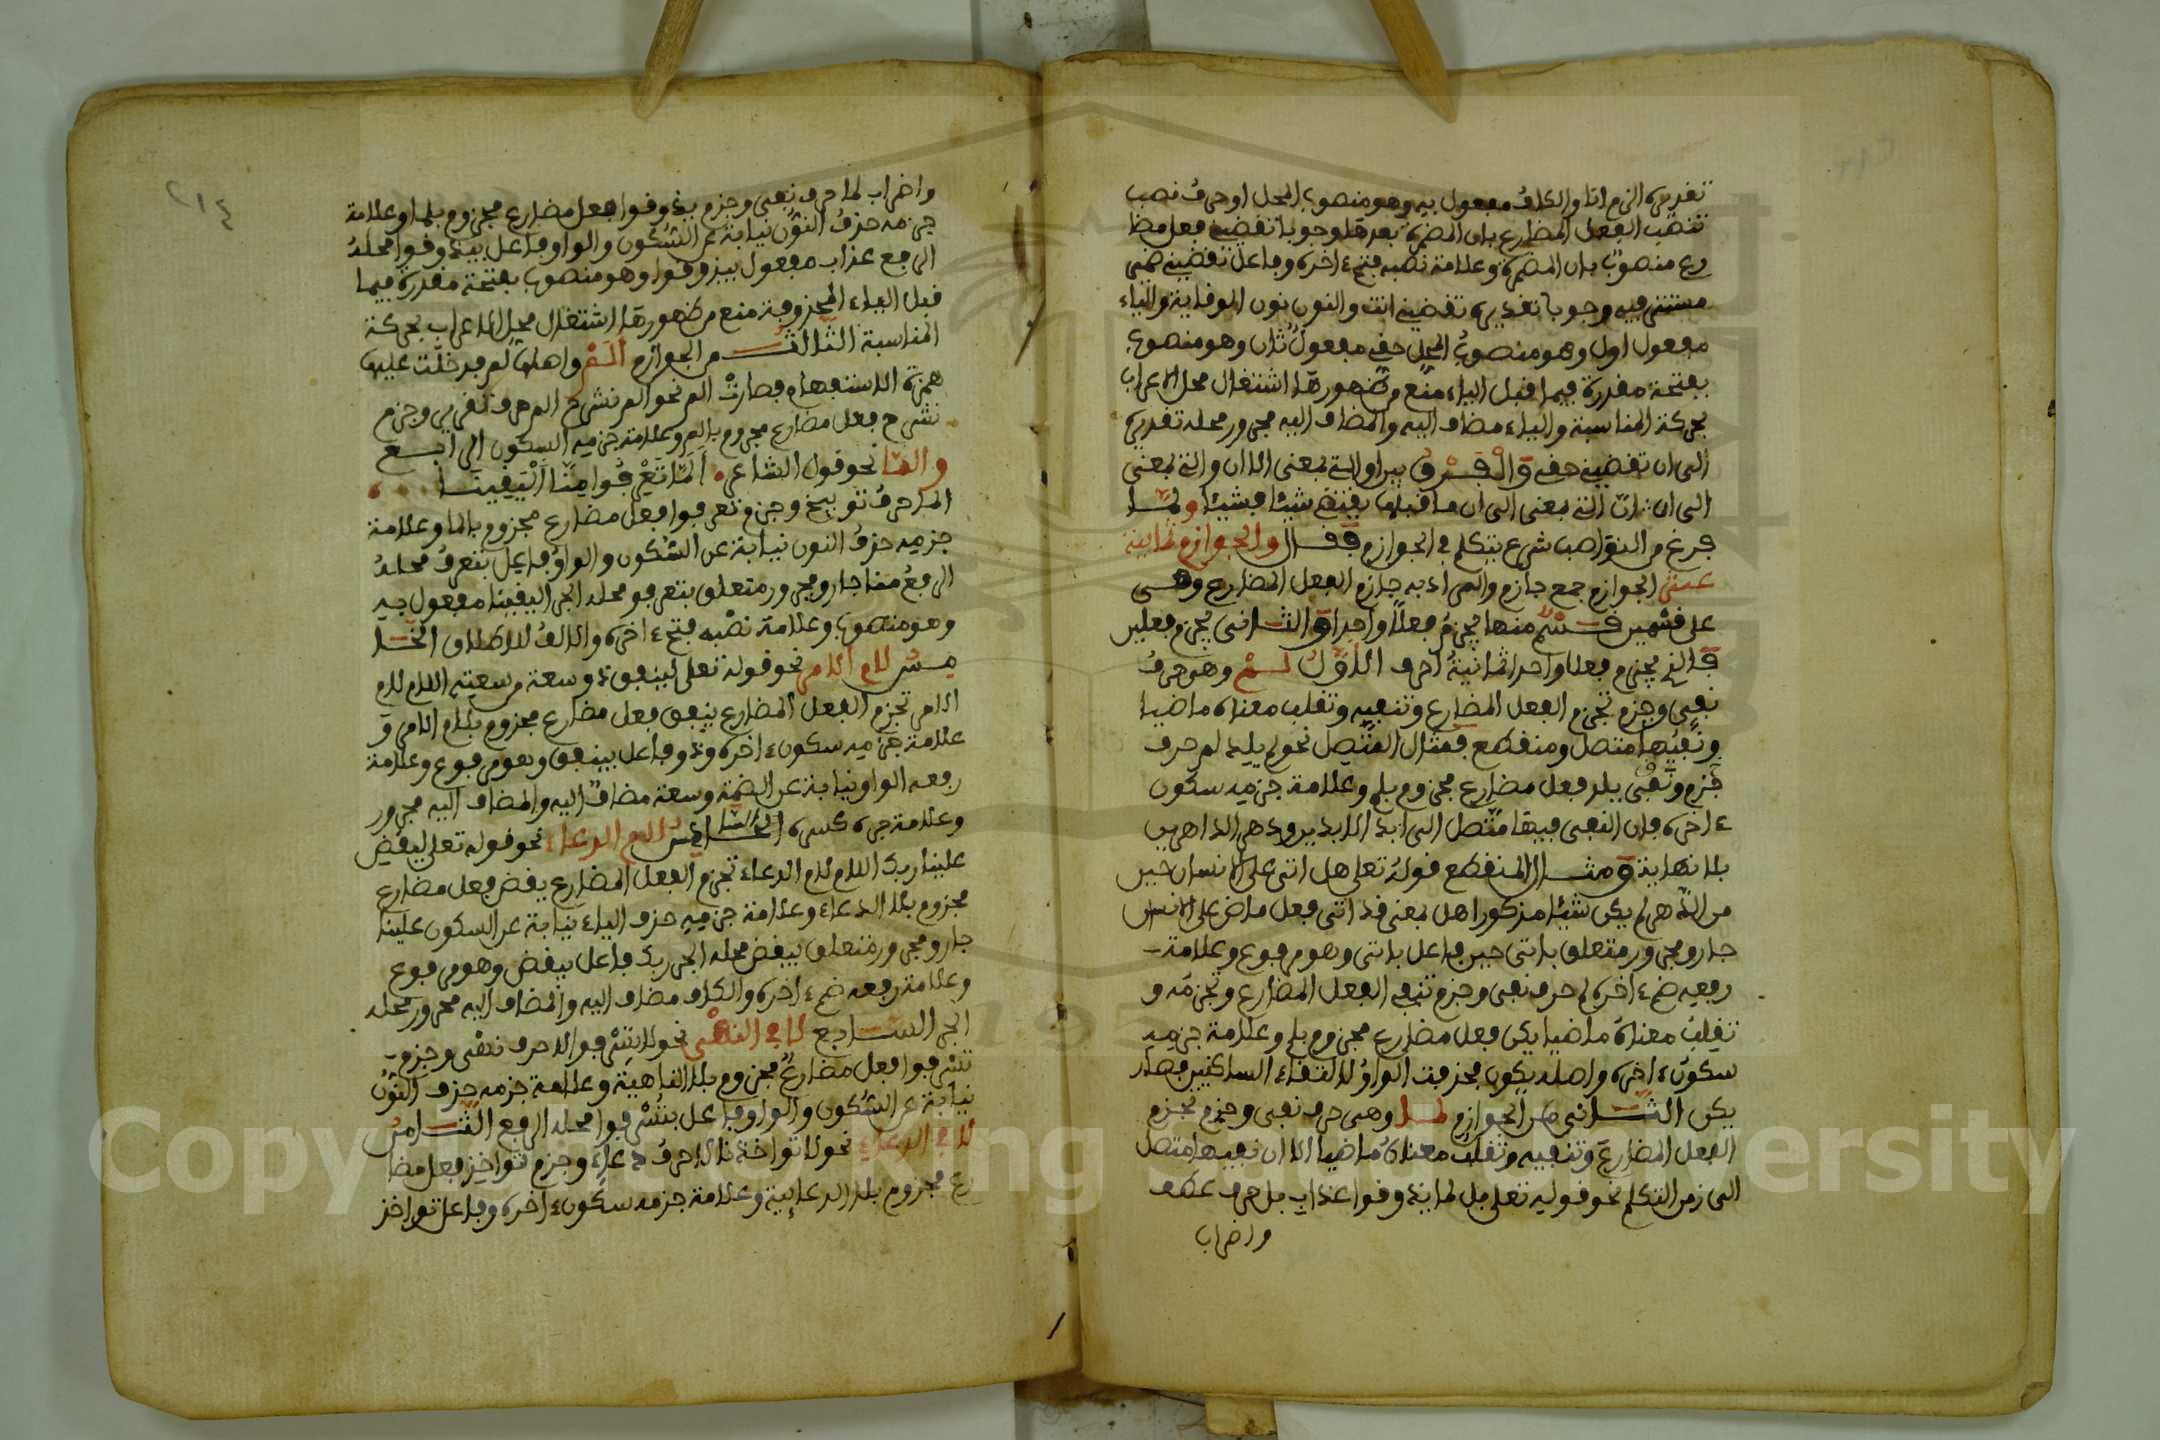 تقديره الزم انا والكاف مفعول به وهو منصوب المحل او حرف نصب
تنصب الفعل المضارع بان المضمرة بعدها وجوبا تقضيني فعل مضا
رع منصوب بان المضمرة وعلامة نصبه فتح ء اخره وفاعل تقضيني ضمير
مستتر فيه وجوبا تقديره تقضيني انت والنون نون الوقاية والياء
مفعول اول وهو منصوب المحل حقي مفعول ثان وهو منصوب
بفتحة مقدرة فيما قبل الياء منع من ظهورها اشتغال محل الاعراب
بحركة المناسبة والياء مضاف اليه والمضاف اليه مجرور محله تقديره
الى ان تقضيني حقي والفرق بين او التي بمعنى الا ان والتي بمعنى
الى ان ان التي بمعنى الى ان ما قبلها ينقضي شيئا فشيئا ولما
فرغ من النواصب شرع يتكلم في الجوازم فقال والجوازم ثمانية
عشر الجوازم جمع جازم والمراد به جازم الفعل المضارع وهي
على قسمين قسم منها يجزم فعلا واحدا والثاني يجزم فعلين
فالذي يجزم فعلا واحدا ثمانية احرف الاول لم وهو حرف
نفي وجزم تجزم الفعل المضارع وتنفيه وتقلب معناه ماضيا
ونفيها متصل ومنقطع فمثال المتصل نحو لم يلد لم حرف
جزم ونفي يلد فعل مضارع مجزوم بلم وعلامة جزمه سكون
ء اخره فان النفي فيها متصل الى ابد الابد ودهر الداهرين
بلا نهاية ومثال المنقطع قوله تعلى هل اتى على الانسان حين
من الدهر لم يكن شيئا مذكورا هل بمعنى قد اتى فعل ماض على الانسان
جار ومجرور متعلق باتى حين فاعل باتى وهو مرفوع وعلامة
رفعه ضم ء اخره لم حرف نفي وجزم تنفي الفعل المضارع وتجزمه و
تقلب معناه ماضيا يكن فعل مضارع مجزوم بلم وعلامة جزمه
سكون ء اخره واصله يكون فحذفت الواو لالتقاء الساكنين فصار
يكن الثاني من الجوازم لما وهي حرف نفي وجزم تجزم
الفعل المضارع وتنفيه وتقلب معناه ماضيا الا ان نفيها متصل
الى زمن التكلم نحو قوله تعلى بل لما يذوقوا عذاب بل حرف عطف
واضراب
٢١٤
واضراب لما حرف نفي وجزم يذوقوا فعل مضارع مجزوم بلما وعلامة
جزمه حذف النون نيابة عن السكون والواو فاعل بيذوقوا محله
الرفع عذاب مفعول بيذوقوا وهو منصوب بفتحة مقدرة فيما
قبل الياء المحذوفة منع من ظهورها اشتغال محل الاعراب بحركة
المناسبة الثالث من الجوازم ألم واصلها لم فدخلت عليها
همزة الاستفهام فصارت الم نحو الم نشرح الم حرف تقرير وجزم
نشرح فعل مضارع مجزوم بالم وعلامة جزمه السكون الرابع
والما نحو قول الشاعر الما تعرفوا منا اليقينا
الما حرف توبيخ وجزم تعرفوا فعل مضارع مجزوم بالما وعلامة
جزمه حذف النون نيابة عن السكون والواو فاعل بتعرف محله
الرفع منا جار ومجرور متعلق بتعرفو محله الجر اليقينا مفعول به
وهو منصوب وعلامة نصبه فتح ء اخره والالف للاطلاق الخا
مس لام الامر نحو قوله تعلى لينفق ذو سعة من سعته اللام لام
الامر تجزم الفعل المضارع ينفق فعل مضارع مجزوم بلام الامر و
علامة جزمه سكون ء اخره وذو فاعل بينفق وهو مرفوع وعلامة
رفعه الواو نيابة عن الضمة وسعة مضاف اليه والمضاف اليه مجرور
وعلامة جره كسره السادس لام الدعاء نحو قوله تعلى ليقض
علينا ربك اللام لام الدعاء تجزم الفعل المضارع يقض فعل مضارع
مجزوم بلام الدعاء وعلامة جزمه حذف الياء نيابة عن السكون علينا
جار ومجرور متعلق بيقض محله الجر ربك فاعل بيقض وهو مرفوع
وعلامة رفعه ضم ء اخره والكاف مضاف اليه والمضاف اليه مجرور محله
الجر السابع لا في النهي نحو لا تشرفوا لا حرف نهي وجزم
تشرفوا فعل مضارع مجزوم بلا الناهية وعلامة جزمه حذف النون
نيابة عن السكون والواو فاعل بتشرفوا محله الرفع الثامن
لا في الدعاء نحو لا تواخذنا لا حرف دعاء وجزم تواخذ فعل مضا
رع مجزوم بلا الدعائية وعلامة جزمه سكون ء اخره وفاعل تواخذ
Copyright © King Saud University